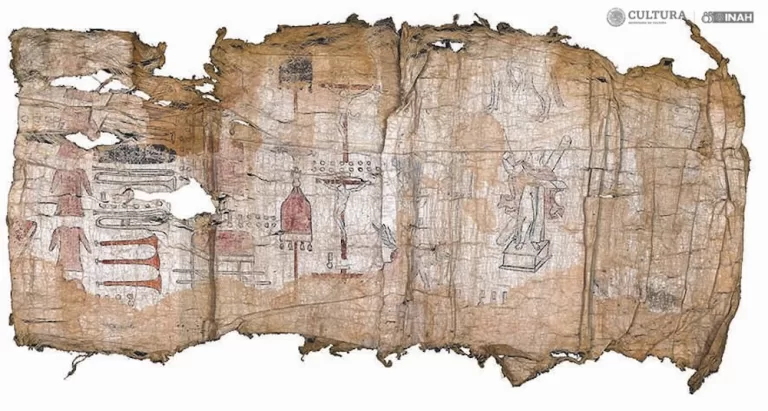 CULTURA
INAH